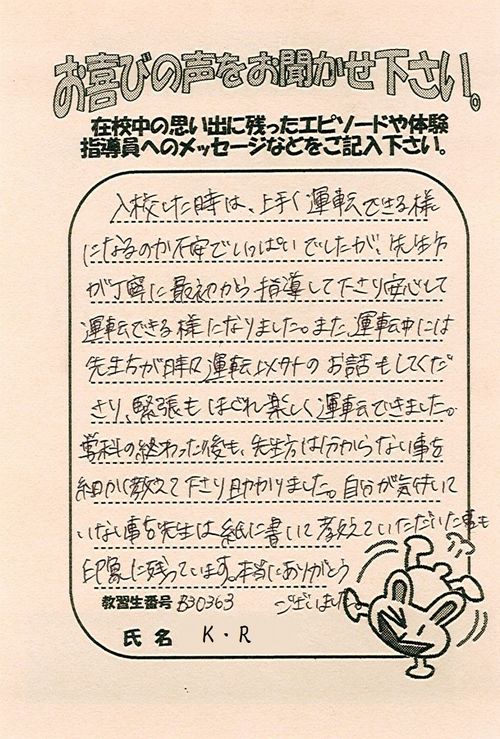 お喜びの声をお聞かせ下さい。
在校中の思い出に残ったエピソードや体験
指導員へのメッセージなどをご記入下さい。
入校した時は、上手く運転できる様
になるのか不安でいっぱいでしたが、先生方
が丁寧に最初から指導して下さり安心して
運転できる様になりました。また、運転中には
先生方が時々運転以外のお話もしてくだ
さり、緊張もほぐれ楽しく運転できました。
学科の終わった後も、先生方は分からない事を
細かく教えて下さり助かりました。自分が気付いて
いない事を先生は紙に書いて教えていただいた事も
印象に残っています。本当にありがとう
ございました。
教習生番号 B30363
氏名 K・R